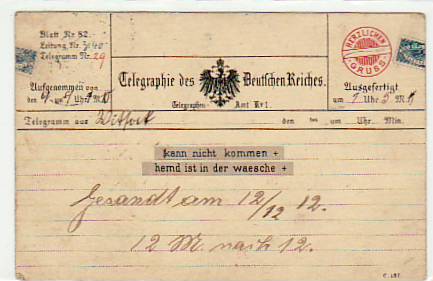 Blatt Nr. 82.
Leitung Nr.
Telegramm Nr. 29
HERZLICHEN
GRUSS
Telegraphie des Deutschen Reiches.
Aufgenommen von
den
um
Uhr
M.
Telegraphen-Amt Nr 1.
Ausgefertigt
um 9 Uhr 5 M.
Telegramm aus
den
um
Uhr
Min.
kann nicht kommen +
hemd ist in der waesche +
Gesandt am 12/12 12.
12 M. nach 12.